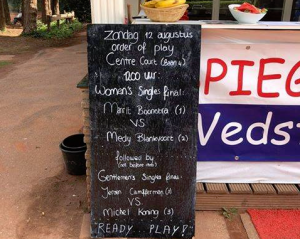 Zondag 12 augustus
order of play
Centre Court (Baan 4)
12.00 uur:
Woman's Singles final:
Merit Boonstra (1)
VS.
Medy Blankevoort (2)
followed by
(not before
Gentlemen's Singles final:
Jeroen Campferman (1)
VS
Michel Koning (3)
"READY.. PLAY!"
PIEG
Vedst